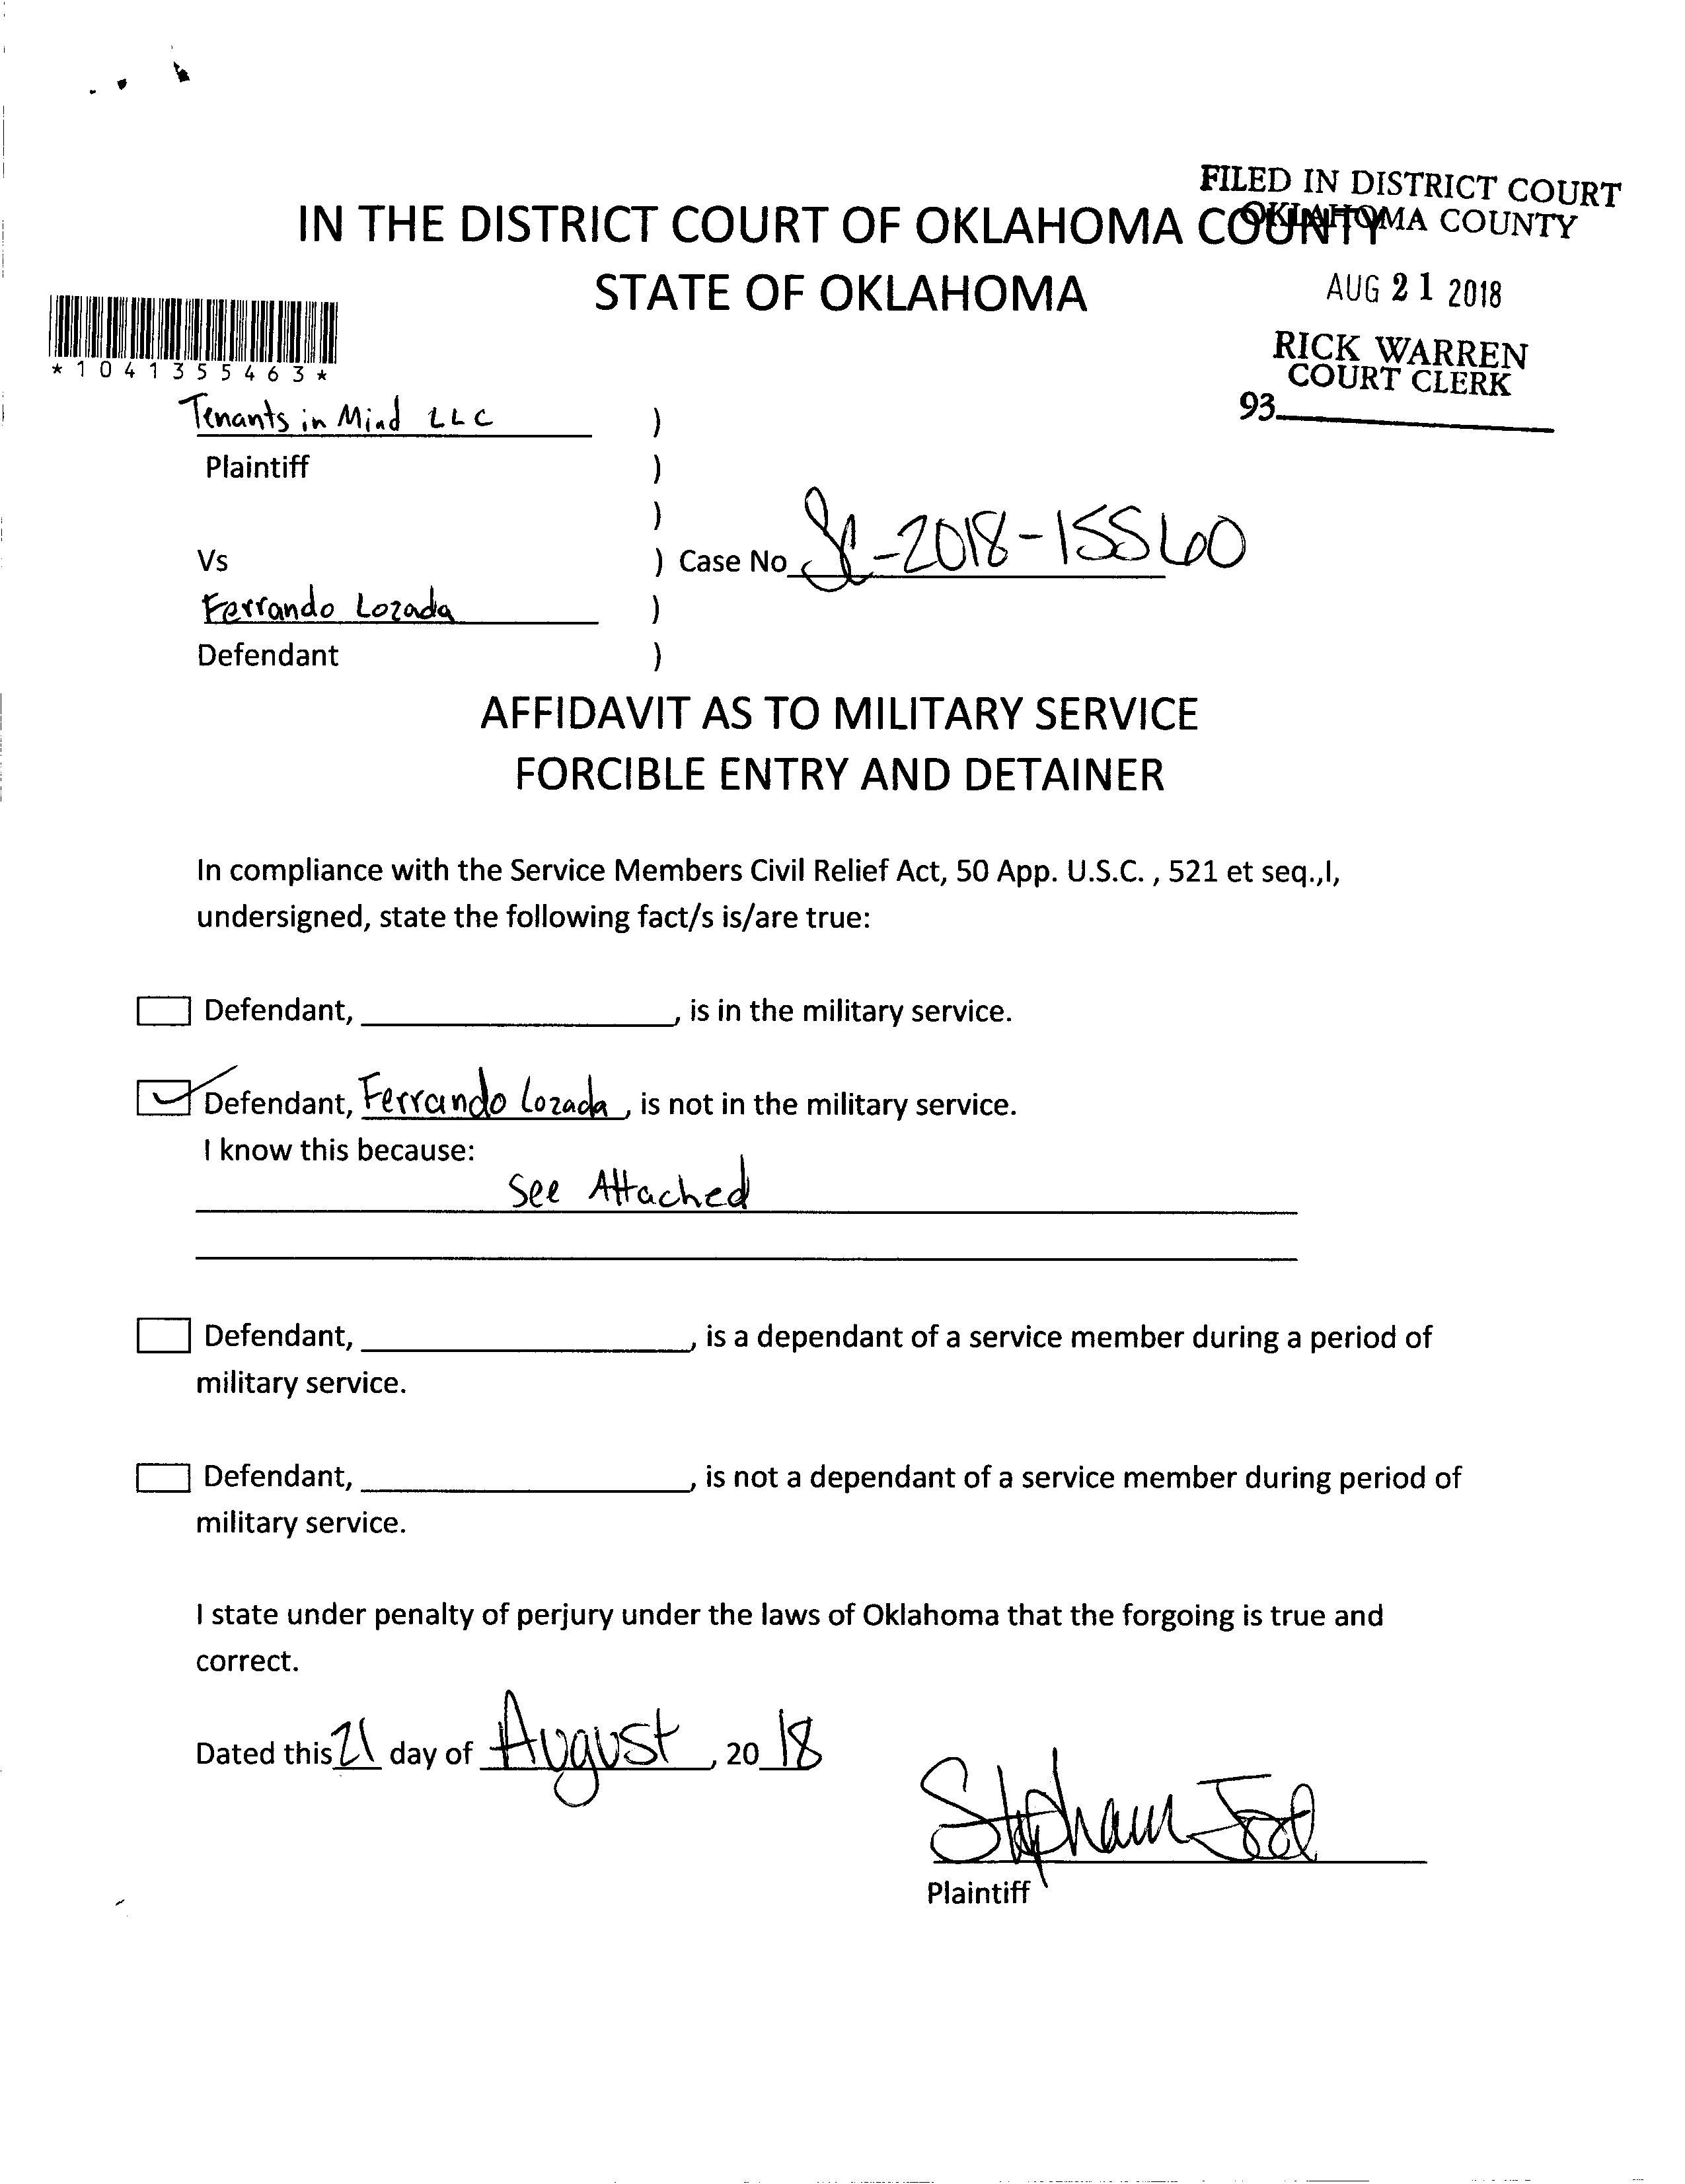 FILED IN DISTRICT COURT
OKLAHOMA COUNTY
IN THE DISTRICT COURT OF OKLAHOMA COUNTY
STATE OF OKLAHOMA
AUG 21 2018
RICK WARREN
COURT CLERK
93
*1041355463*
Tenants in Mind LLC )
Plaintiff )
)
Vs ) Case No SC-2018-15560
Ferrando Lozada )
Defendant )
AFFIDAVIT AS TO MILITARY SERVICE
FORCIBLE ENTRY AND DETAINER
In compliance with the Service Members Civil Relief Act, 50 App. U.S.C. , 521 et seq.,I,
undersigned, state the following fact/s is/are true:
Defendant, , is in the military service.
Defendant, Ferrando Lozada , is not in the military service.
I know this because:
See Attached
Defendant, , is a dependant of a service member during a period of
military service.
Defendant, , is not a dependant of a service member during period of
military service.
I state under penalty of perjury under the laws of Oklahoma that the forgoing is true and
correct.
Dated this 21 day of August , 20 18
Plaintiff